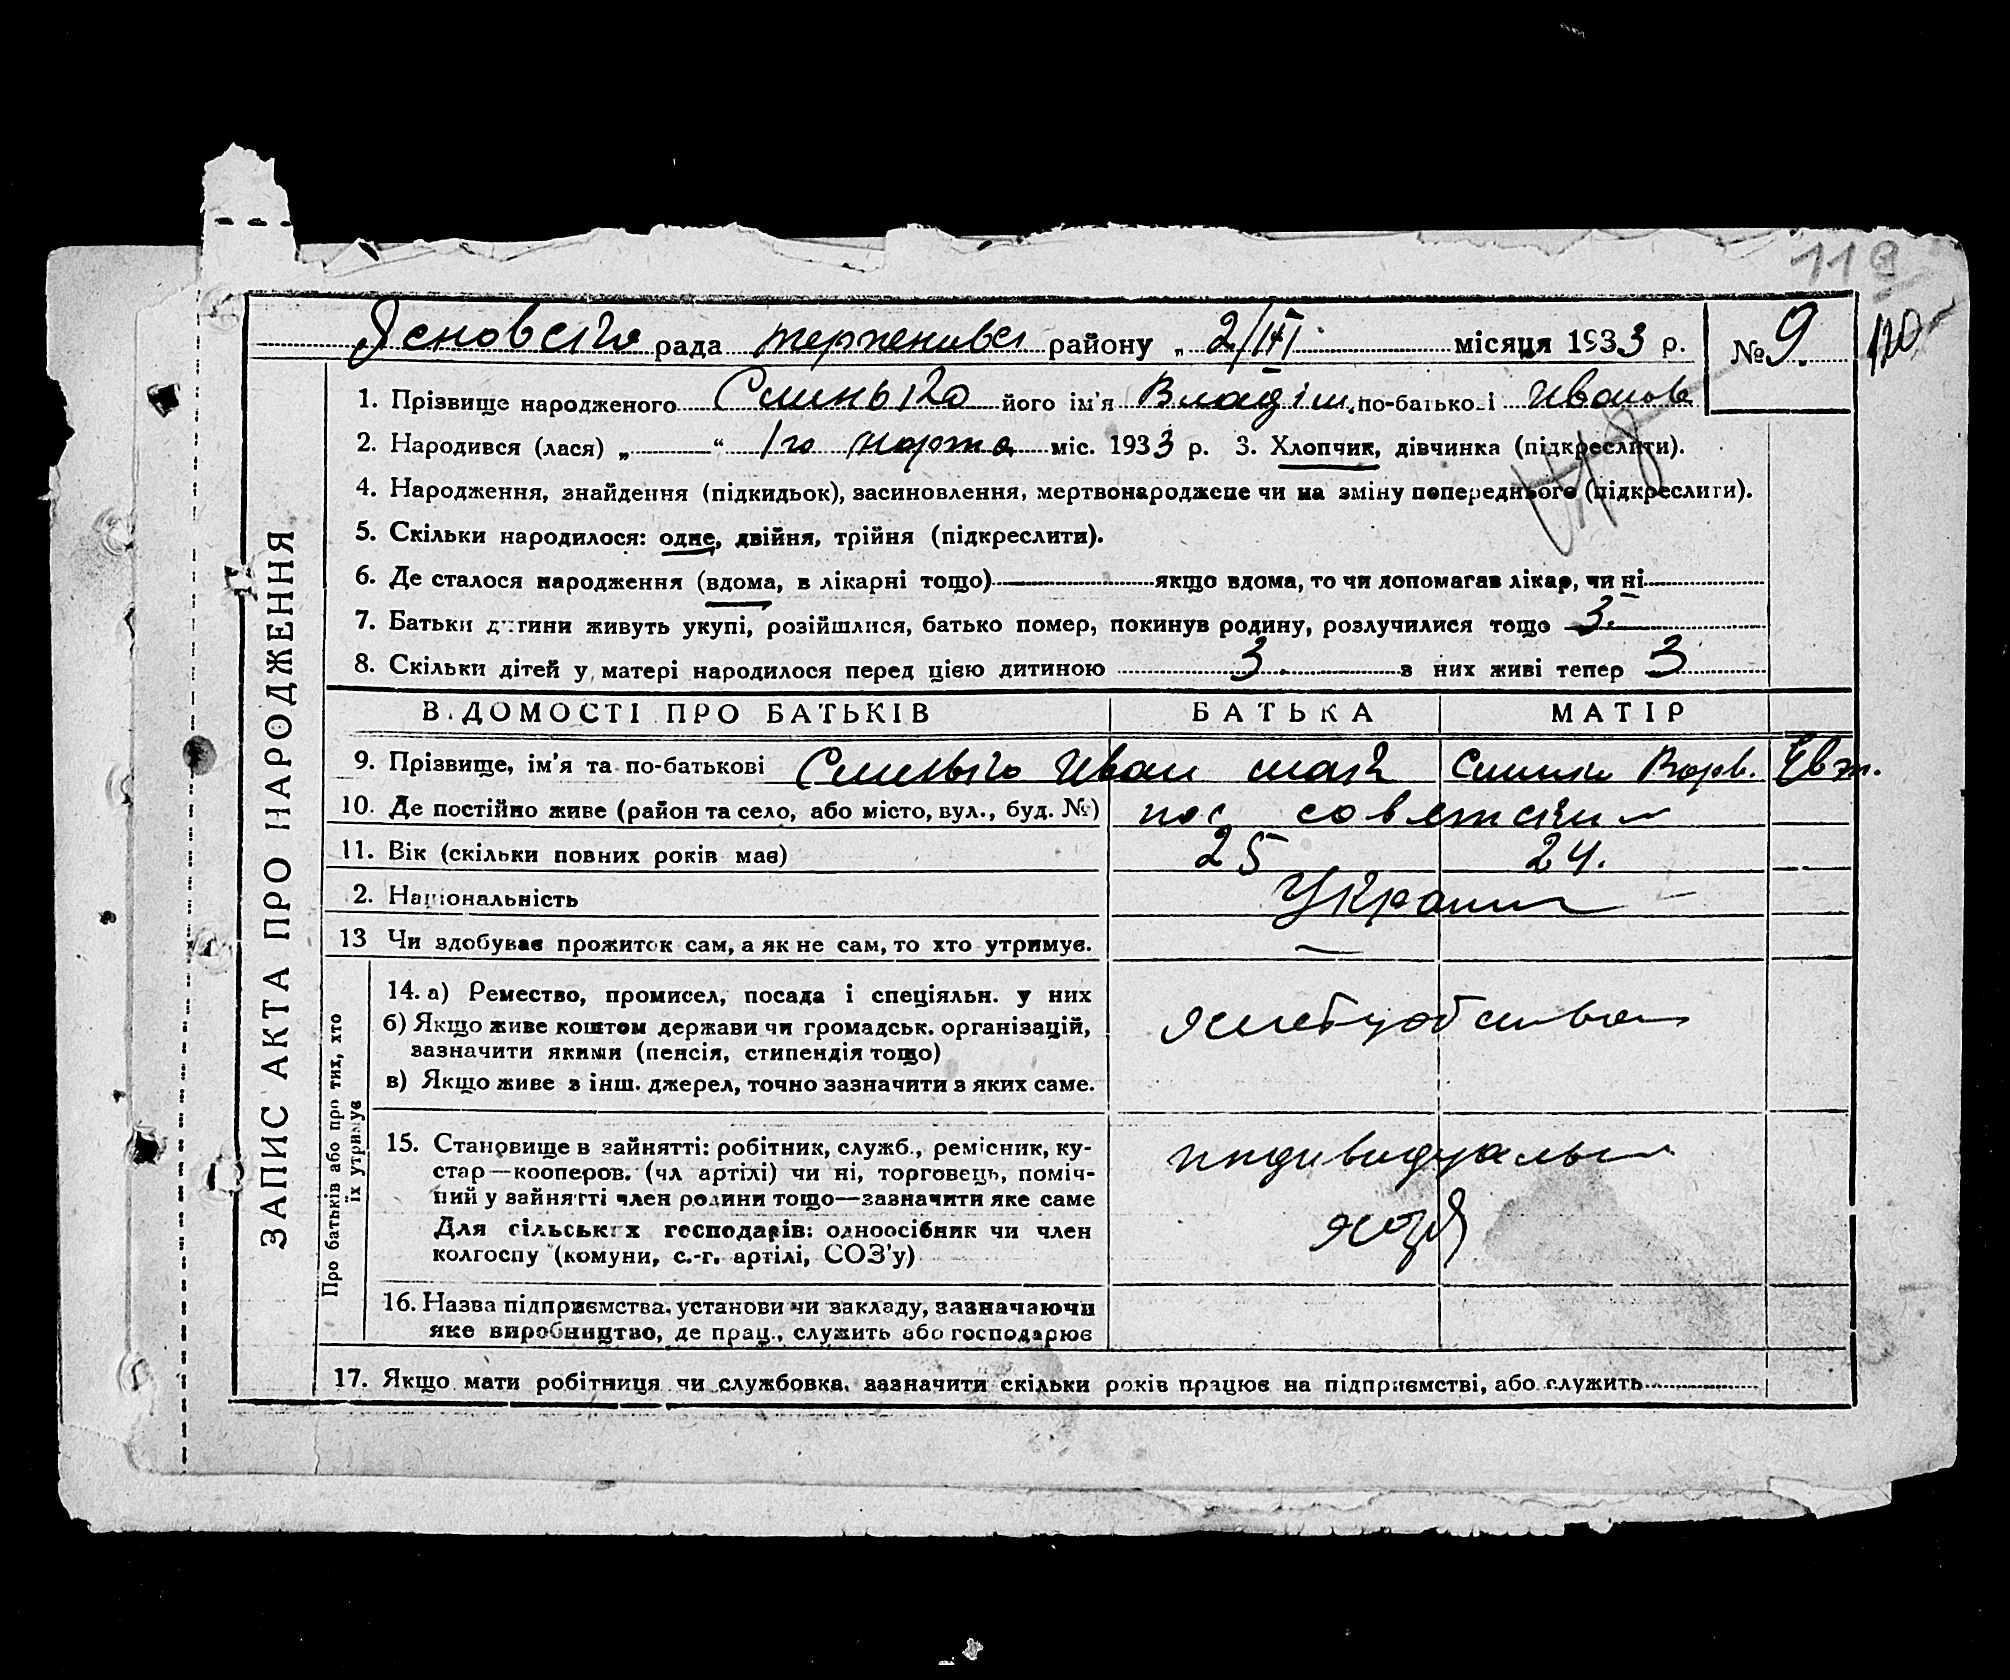 119
рада района „ 2/III місяця 1933 р. № 9. 110
1. Прізвище народженого його ім'я Владім. по-батькові Иванов
2. Народився (лася) „ “ 1го марта міс. 1933 р. 3. Хлопчик, дівчинка (підкреслити).
4. Народження, знайдення (підкидьок), засиновлення, мертвонароджене чи на зміну попереднього (підкреслити).
5. Скільки народилося: одне, двійня, трійня (підкреслити).
6. Де сталося народження (вдома, в лікарні тощо) якщо вдома, то чи допомагав лікар, чи ні
7. Батьки дитини живуть укупі, розійшлися, батько помер, покинув родину, розлучилися тощо 3.
8. Скільки дітей у матері народилося перед цією дитиною 3. з них живі тепер 3
ВІДОМОСТІ ПРО БАТЬКІВ БАТЬКА МАТІР
9. Прізвище, ім'я та по-батькові Иван Варв. Евт.
10. Де постійно живе (район та село, або місто, вул., буд. №) пос
11. Вік (скільки повних років має) 25 24.
2. Національність
13 Чи здобуває прожиток сам, а як не сам, то хто утримує.
14. а) Ремество, промисел, посада і спеціяльн. у них
б) Якщо живе коштом держави чи громадськ. організацій,
зазначити якими (пенсія, стипендія тощо)
в) Якщо живе з інш. джерел, точно зазначити з яких саме.
15. Становище в зайнятті: робітник, служб., ремісник, ку-
стар—кооперов. (чл артілі) чи ні, торговець, поміч-
ний у зайнятті член родини тощо—зазначити яке саме
Для сільських господарів: одноосібник чи член
колгоспу (комуни, с.-г. артілі, СОЗ'у)
16. Назва підприємства, установи чи закладу, зазначаючи
яке виробництво, де прац., служить або господарює
17. Якщо мати робітниця чи службовка, зазначити скільки років працює на підприємстві, або служить
ЗАПИС АКТА ПРО НАРОДЖЕННЯ
Про батьків або про тих, хто
їх утримує